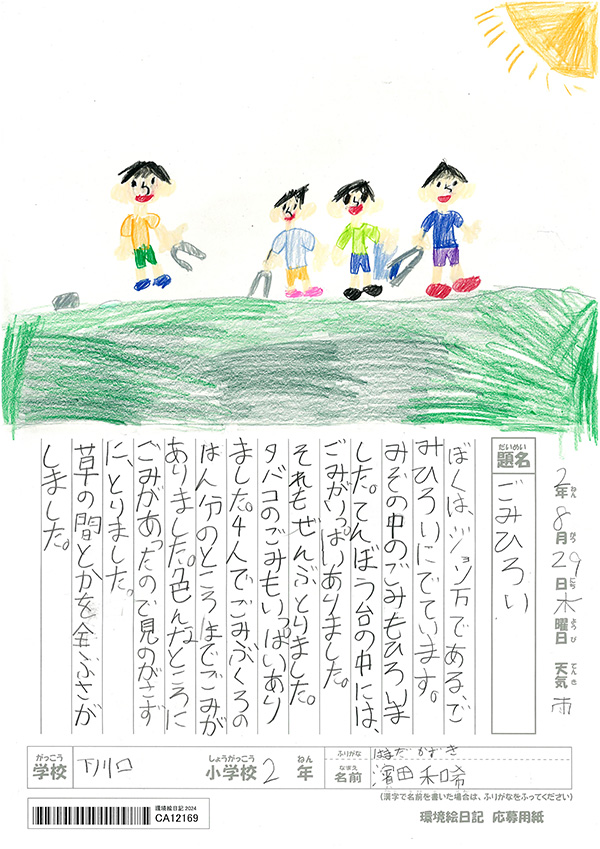 2年8月29日木曜日 天気 雨
だいめい
題名
ごみひろい
ぼくは、ジョン万である、ご
みひろいにでています。
みぞの中のごみもひろいま
した。てんぼう台の中には、
ごみがいっぱいありました。
それもぜんぶとりました。
タバコのごみもいっぱいあり
ました。4人でごみぶくろの
はん分のところまでごみが
ありました。色んなところに
ごみがあったので見のがさず
に、とりました。
草の間とかを全ぶさが
しました。
がっこう
学校 下川口 小学校 2 年
しょうがっこう
ねん
ふりがな はまだ かずき
なまえ
名前 濵田 和希
(漢字で名前を書いた場合は、ふりがなをふってください)
環境絵日記2024
CA12169
環境絵日記 応募用紙